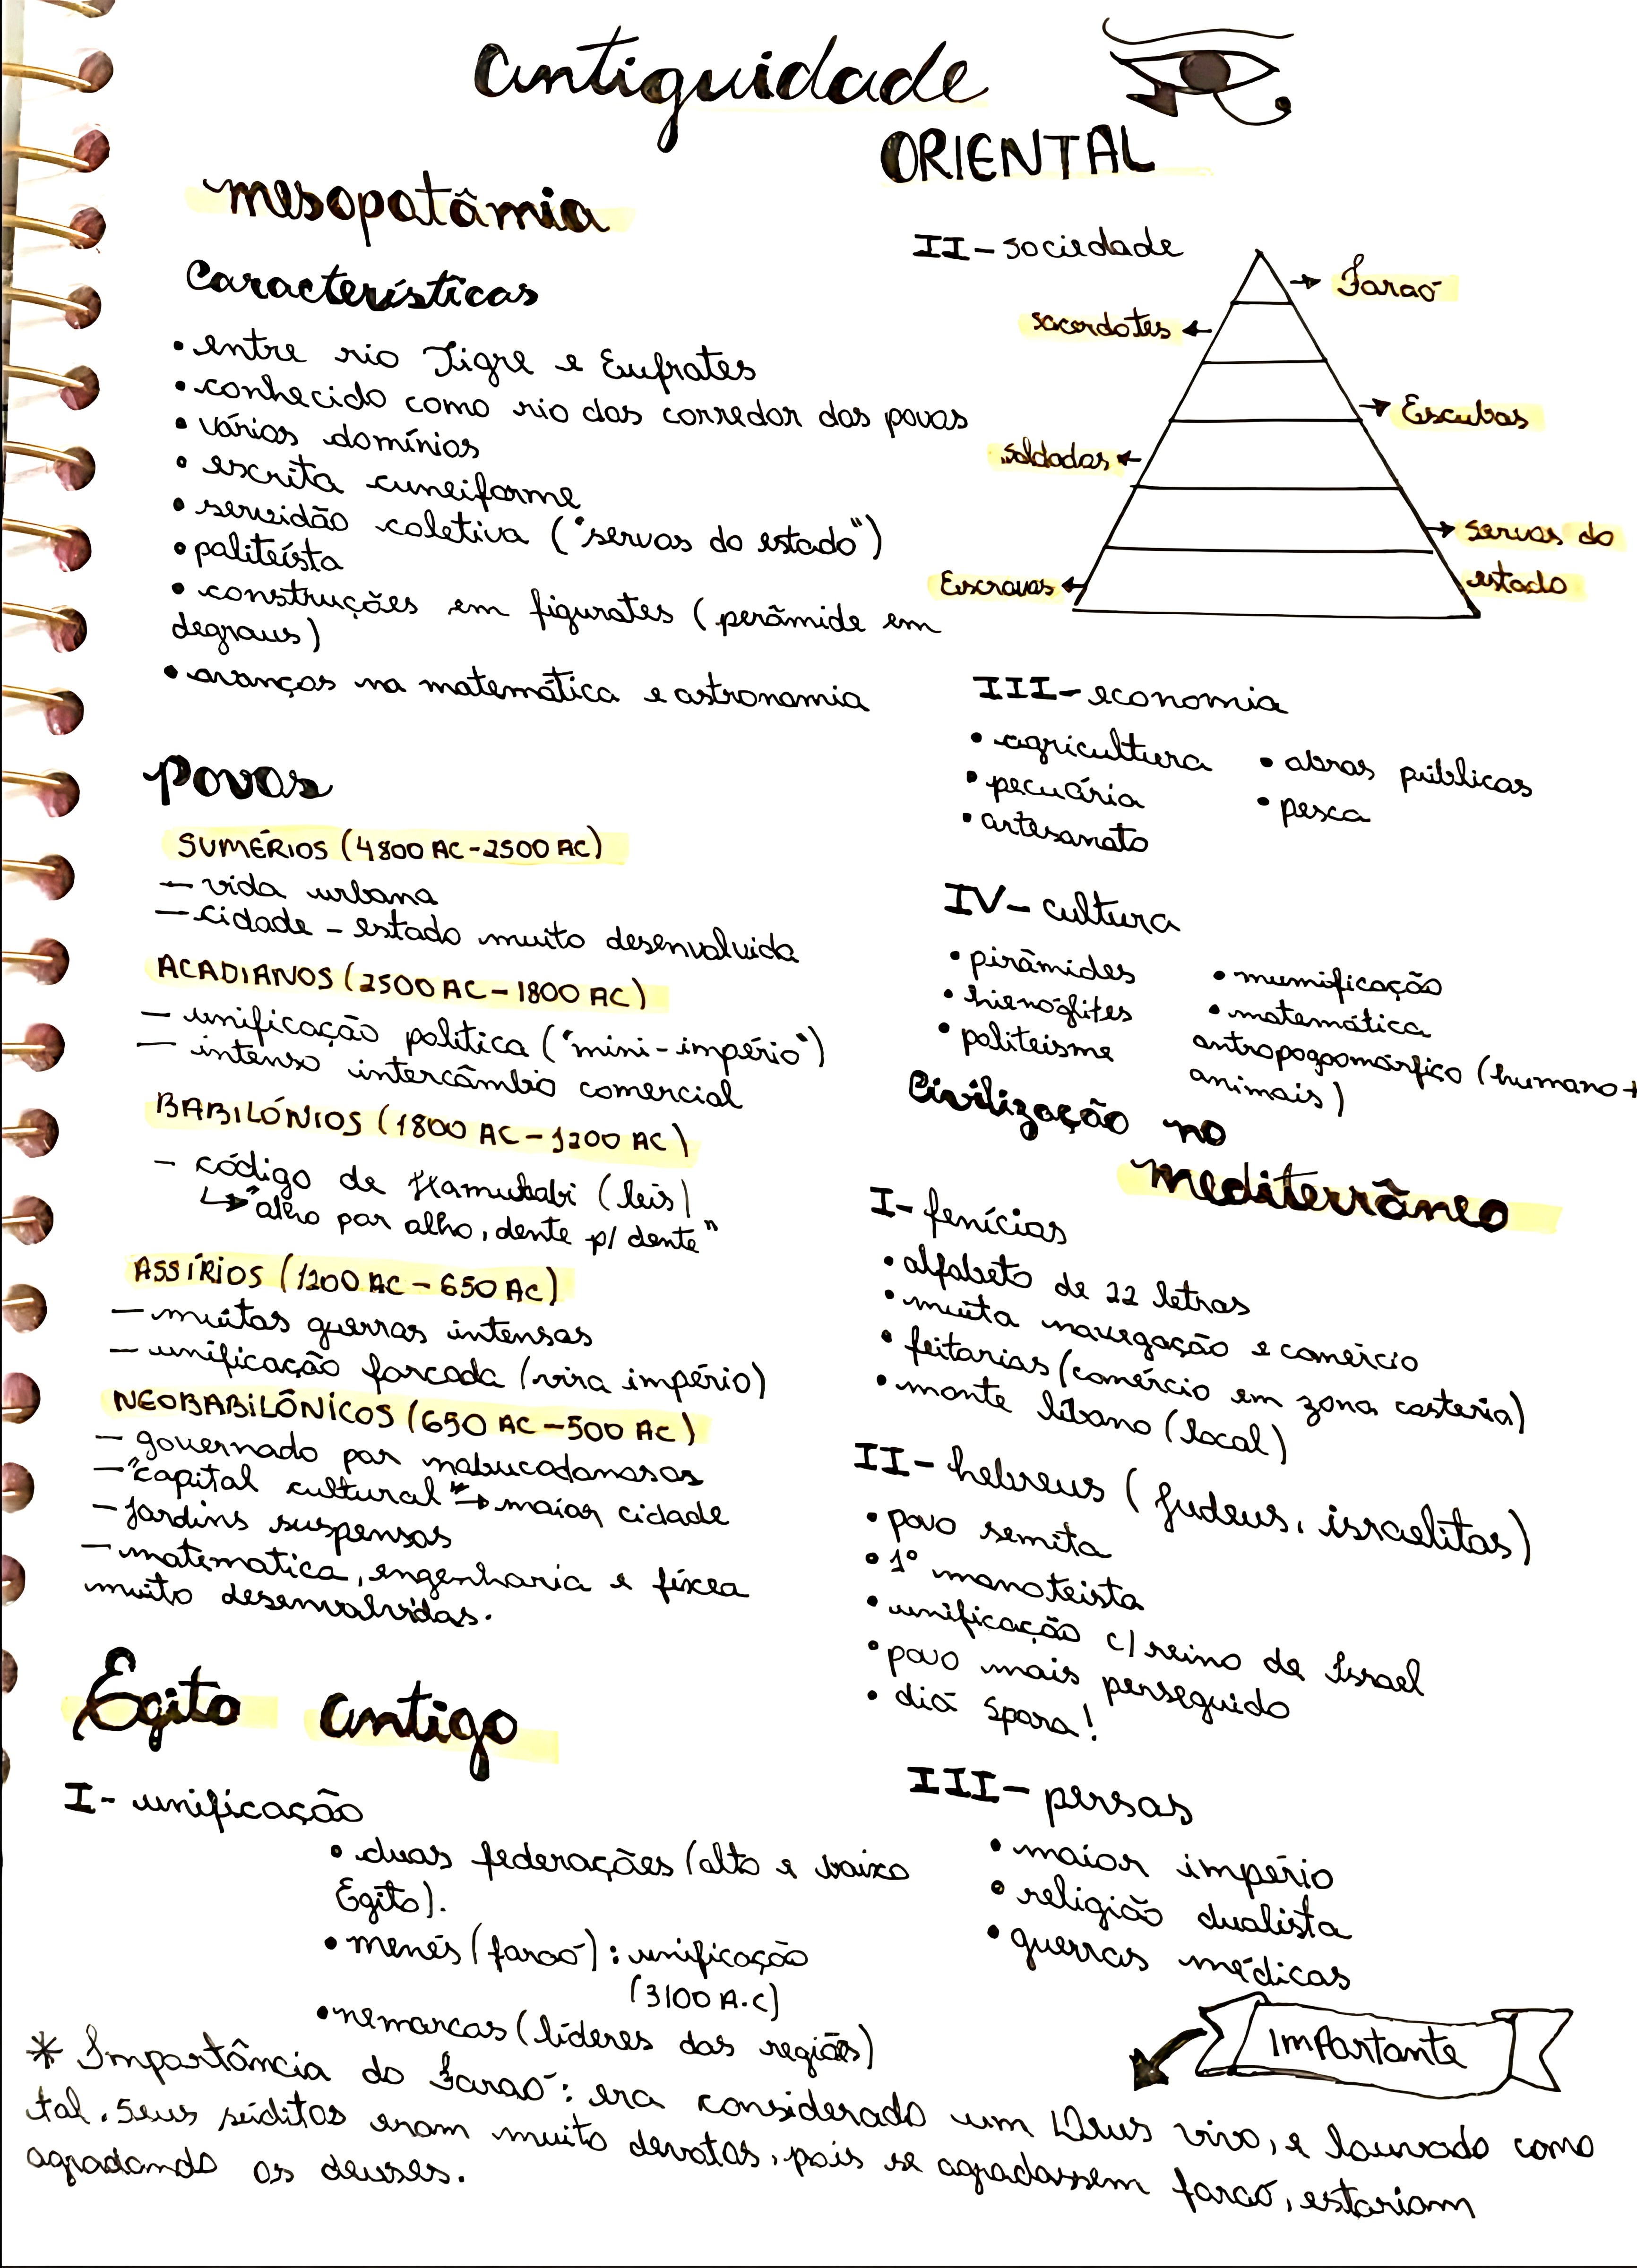 Antiguidade
ORIENTAL
mesopotâmia
Características
• entre rio Tigre e Eufrates
• conhecido como rio das corredor dos povos
• vários domínios
• escrita cuneiforme
• servidão coletiva ("servos do estado")
• politeísta
• construções em figurates (perâmide em
degraus)
• avanços na matemática e astronomia
Povos
SUMÉRIOS (4800 AC-2500 AC)
- vida urbana
- cidade-estado muito desenvolvida
ACADIANOS (2500 AC-1800 AC)
- unificação política ("mini-império")
- intenso intercâmbio comercial
BABILÓNIOS (1800 AC-1200 AC)
- código de Hamurabi (leis)
↳ "olho por olho, dente p/ dente"
ASSÍRIOS (1200 AC-650 AC)
- muitas guerras intensas
- unificação forcada (vira império)
NEOBABILÔNICOS (650 AC-500 AC)
- governado por nabucodonosos
- "capital cultural" → maior cidade
- Jardins suspensos
- matematica, engenharia e físcea
muito desenvolvidas.
Egito antigo
I- unificação
• duas federações (alto e baixo
Egito).
• menés (faraó): unificação
(3100 A.C)
• nemarcas (líderes das regiões)
II- sociedade
→ Faraó
sacerdotes ←
→ Escribas
soldados ←
→ servos do
estado
Escravos ←
III- economia
• agricultura • obras públicas
• pecuária • pesca
• artesanato
IV- cultura
• pirâmides • mumificação
• hieróglifes • matemática
• politeisme antropogomórfico (humano+
animais)
Civilização no
mediterrâneo
I- fenícios
• alfabeto de 22 letras
• muita navegação e comércio
• feitorias (comércio em zona costeria)
• monte líbano (local)
II- hebreus (judeus, israelitas)
• povo semita
• 1º monoteista
• unificação c/ reino de Israel
• povo mais perseguido
• diá spora!
III- persas
• maior império
• religião dualista
• guerras médicas
Importante
* Importância do Faraó: era considerado um Deus vivo, e louvado como
tal. Seus súditos eram muito devotos, pois se agradassem faraó, estariam
agradando os deuses.